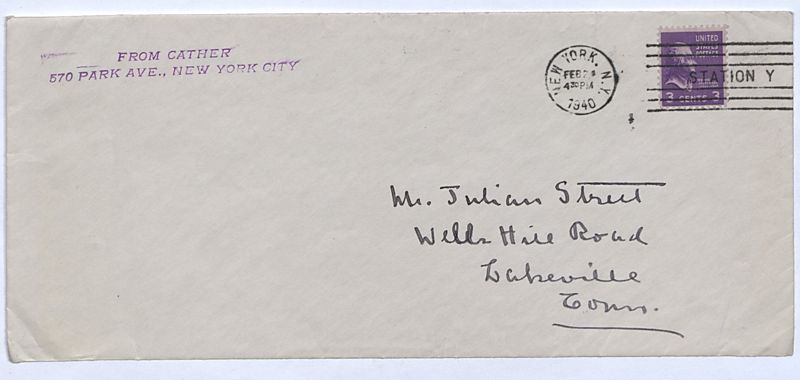 FROM CATHER
570 PARK AVE., NEW YORK CITY
NEW YORK, N.Y.
FEB
4 30 PM
1940
UNITED
STATES
POSTAGE
STATION Y
3 CENTS 3
Mr. Julian Street
Wells Hill Road
Lakeville
Conn.